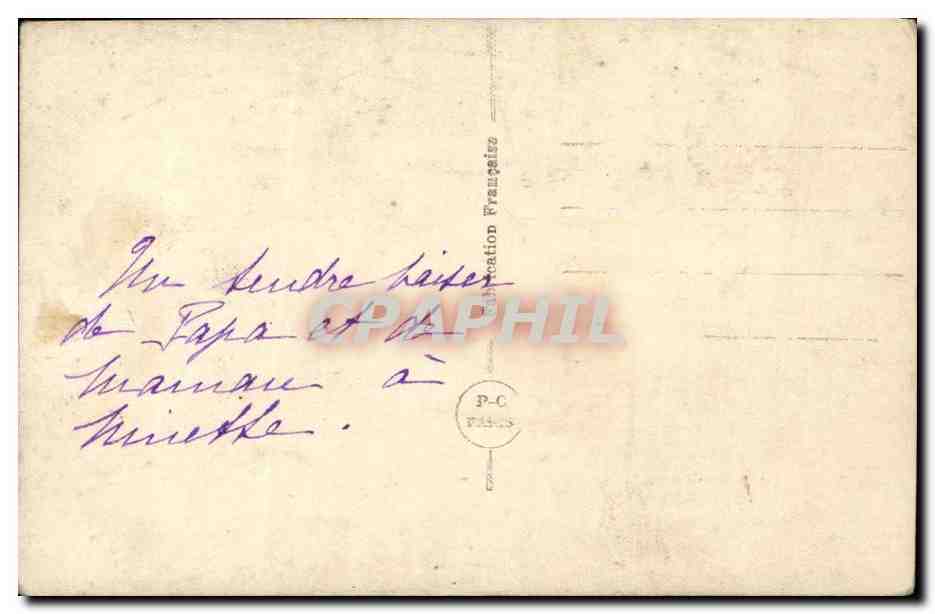 Un tendre baiser
de Papa et de
Maman à
Ninette.
Fabrication Française
P-C
PARIS
CPAPHIL